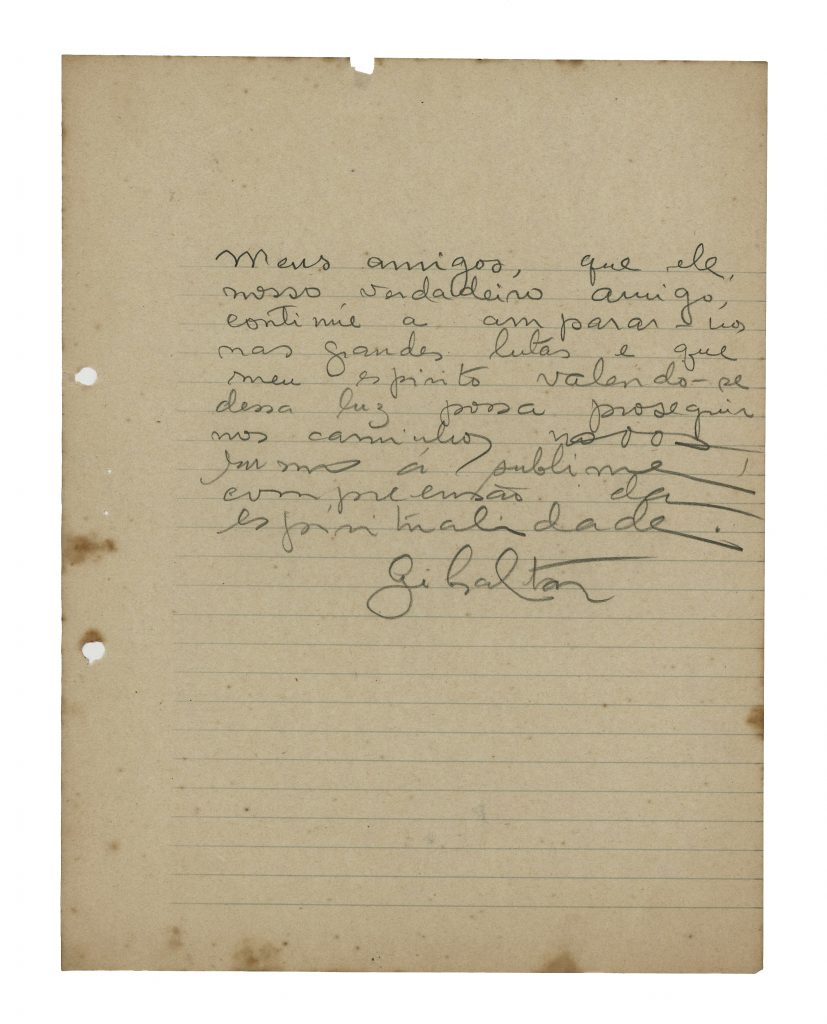 Meus amigos, que ele,
nosso verdadeiro amigo,
continúe a amparar-nos
nas grandes lutas e que
meu espirito valendo-se
dessa luz possa proseguir
nos caminhos
rumo á sublime
compreensão da
espiritualidade.